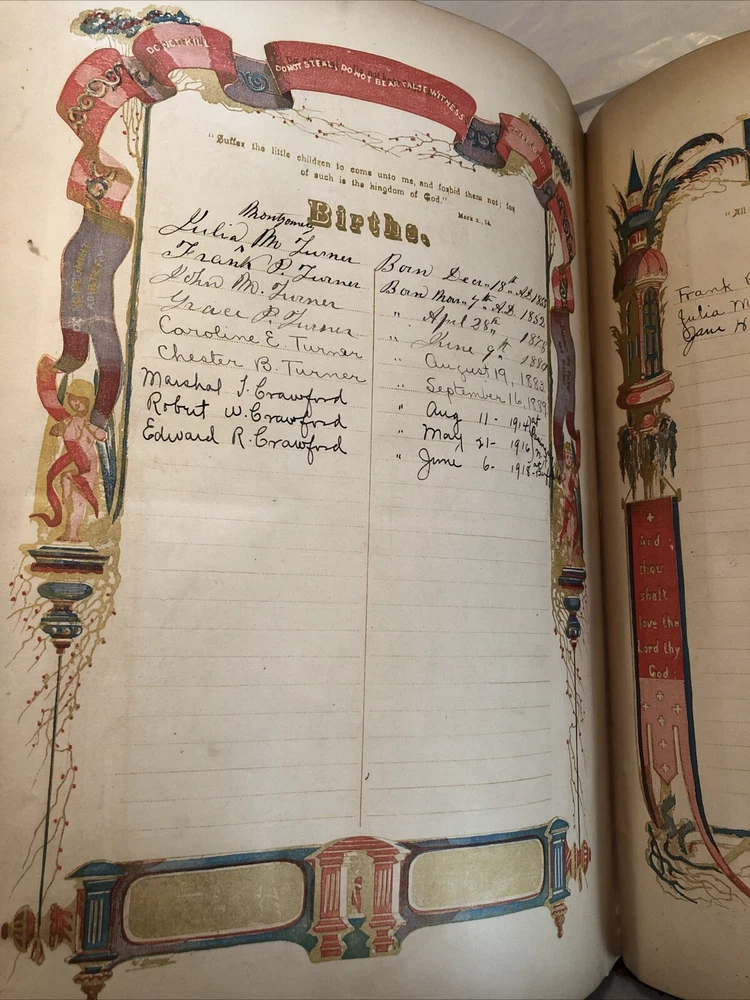 DO NOT KILL
DO NOT STEAL; DO NOT BEAR FALSE WITNESS
"Suffer the little children to come unto me, and forbid them not; for
of such is the kingdom of God."
Mark x., 14.
Births.
Montgomery
Julia M Turner Born Dec. 18th A.D.
Frank P. Turner Born Mar. 7th A.D. 1852
John M. Turner " April 28th 1878
Grace P. Turner " June 9th 1880
Caroline E. Turner " August 19, 1883
Chester B. Turner " September 16, 1889
Marshal T. Crawford " Aug 11 - 1914 at
Robert W. Crawford " May 21 - 1916
Edward R. Crawford " June 6 - 1918 - at
"All
Frank
Julia M
Jane H
And
thou
shalt
love the
Lord thy
God